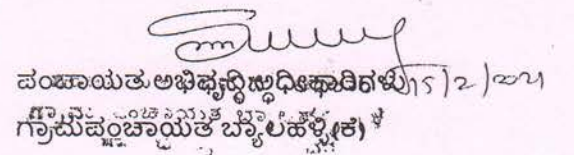 ಪಂಚಾಯತ ಅಭಿವೃದ್ಧಿ ಅಧಿಕಾರಿಗಳು 15/2/2021
ಗ್ರಾಮ ಪಂಚಾಯತ ಬ್ಯಾಲಹಳ್ಳಿ(ಕೆ)